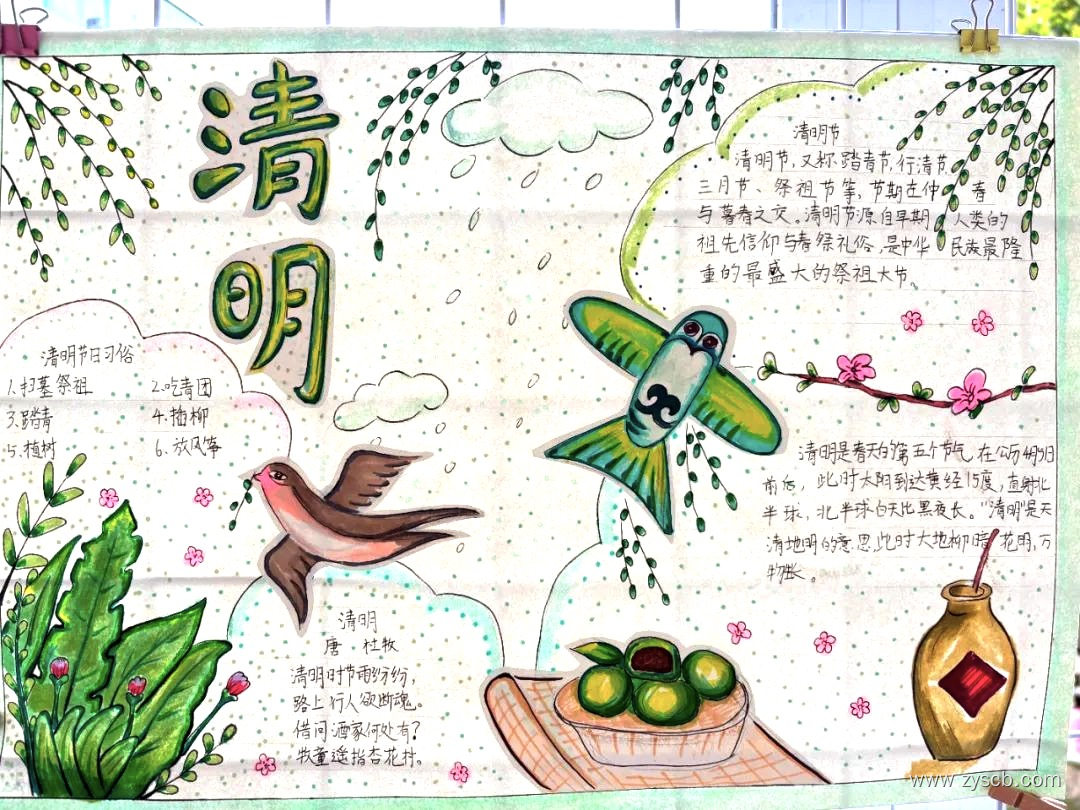 清明
清明节
清明节,又称踏青节,行清节
三月节、祭祖节等,节期在仲 春
与暮春之交。清明节源自早期 人类的
祖先信仰与春祭礼俗,是中华 民族最隆
重的最盛大的祭祖大节。
清明节日习俗
1.扫墓祭祖 2.吃青团
3.踏青 4.插柳
5.植树 6.放风筝
清明是春天的第五个节气,在公历4月5日
前后,此时太阳到达黄经15度,直射北
半球,北半球白天比黑夜长。“清明”是天
清地明的意思,此时大地柳暗 花明,万
物长。
清明
唐 杜牧
清明时节雨纷纷,
路上行人欲断魂。
借问酒家何处有?
牧童遥指杏花村。
www.zyscb.com